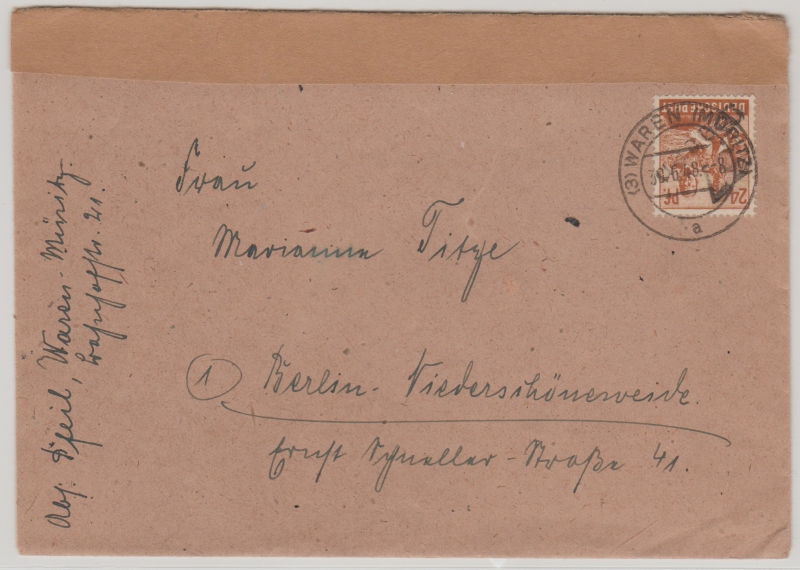 Frau
Marianne Titze
1 Berlin-Niederschöneweide.
Ernst Schneller-Straße 41.
Abs. Pfeil, Waren-Müritz,
Bahnhofstr. 21.
(3) WAREN (MÜRITZ)
a
DEUTSCHE POST
24 PF.